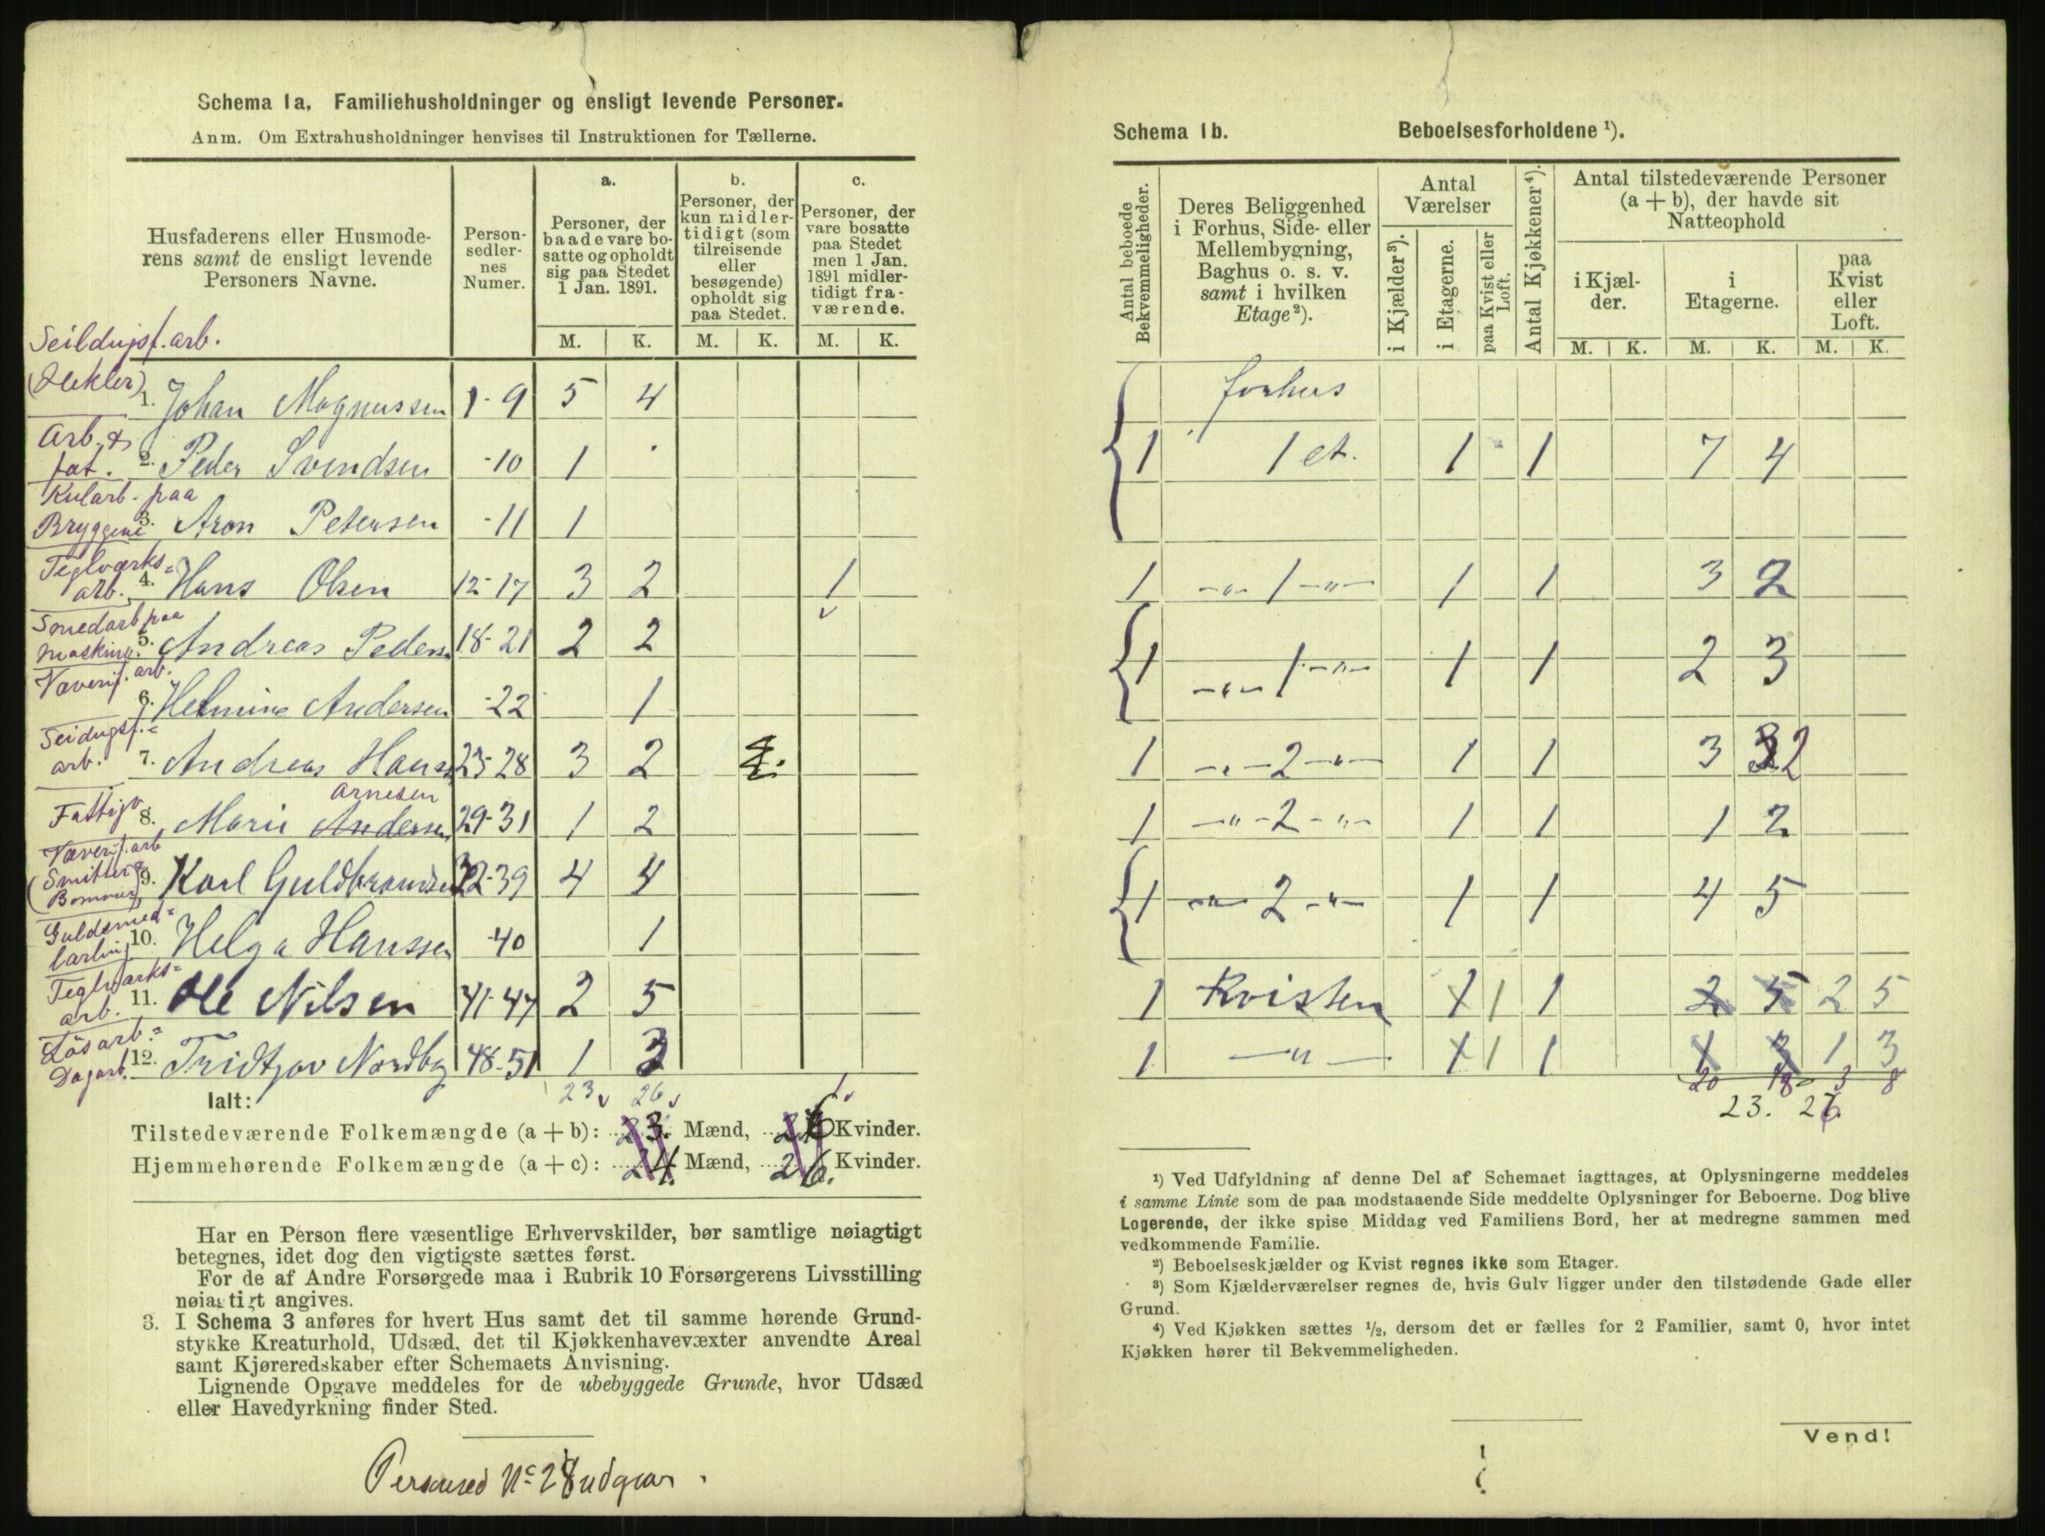 Schema 1a. Familiehusholdninger og ensligt levende Personer.
Anm. Om Extrahusholdninger henvises til Instruktionen for Tællerne.
Husfaderens eller Husmoderens samt de ensligt levende Personers Navne.
Person-sedler-nes Numer.
a. Personer, der baade vare bosatte og opholdt sig paa Stedet 1 Jan. 1891.
b. Personer, der kun midlertidigt (som tilreisende eller besøgende) opholdt sig paa Stedet.
c. Personer, der vare bosatte paa Stedet men 1 Jan. 1891 midlertidigt fraværende.
M. K. M. K. M. K.
Seildugsf. arb.
(Hekler) 1. Johan Magnussen 1-9 5 4
Arb. &
fat. 2. Peder Svendsen -10 1 .
Kularb. paa
Bryggene 3. Aron Petersen -11 1
Teglværks=
arb. 4. Hans Olsen 12-17 3 2 1
Smedarb paa
5. Andreas Peders 18-21 2 2
Væverif. arb.
6. Helmine Andersen -22 1
Seidugsf.=
arb. 7. Andreas Hans 23-28 3 2
Arnesen
Fattigv 8. Marie Andersen 29-31 1 2
Væverif. arb
9. Karl Guldbrandsen 32-39 4 4
Guldsmed=
10. Helga Hanssen -40 1
Teglværks=
arb. 11. Ole Nilsen 41-47 2 5
Løsarb.=
Dagarb. 12. Fridtjov Nordby 48-51 1 3
23 26 1
Ialt:
Tilstedeværende Folkemængde (a + b): 23. Mænd, 26 Kvinder.
Hjemmehørende Folkemængde (a + c): 24. Mænd, 26. Kvinder.
Har en Person flere væsentlige Erhvervskilder, bør samtlige nøiagtigt
betegnes, idet dog den vigtigste sættes først.
For de af Andre Forsørgede maa i Rubrik 10 Forsørgerens Livsstilling
nøiagtigt angives.
3. I Schema 3 anføres for hvert Hus samt det til samme hørende Grund-
stykke Kreaturhold, Udsæd, det til Kjøkkenhavevæxter anvendte Areal
samt Kjøreredskaber efter Schemaets Anvisning.
Lignende Opgave meddeles for de ubebyggede Grunde, hvor Udsæd
eller Havedyrkning finder Sted.
Personsed Nº 28 udgaar.
Schema 1b. Beboelsesforholdene ¹).
Antal beboede Bekvemmeligheder.
Deres Beliggenhed i Forhus, Side- eller Mellembygning, Baghus o. s. v. samt i hvilken Etage ²).
Antal Værelser
i Kjælder ³).
i Etagerne.
paa Kvist eller Loft.
Antal Kjøkkener ⁴).
Antal tilstedeværende Personer (a + b), der havde sit Natteophold
i Kjælder.
i Etagerne.
paa Kvist eller Loft.
M. K. M. K. M. K.
forhus
1 1 et. 1 1 7 4
1 -"- 1 -"- 1 1 3 2
1 -"- 1 -"- 1 1 2 3
1 -"- 2 -"- 1 1 3 2
1 -"- 2 -"- 1 1 1 2
1 -"- 2 -"- 1 1 4 5
1 Kvisten 1 1 1 2 5 2 5
1 -"- 1 1 1 1 3 1 3
20 18 3 8
23. 26.
¹) Ved Udfyldning af denne Del af Schemaet iagttages, at Oplysningerne meddeles
i samme Linie som de paa modstaaende Side meddelte Oplysninger for Beboerne. Dog blive
Logerende, der ikke spise Middag ved Familiens Bord, her at medregne sammen med
vedkommende Familie.
²) Beboelseskjælder og Kvist regnes ikke som Etager.
³) Som Kjælderværelser regnes de, hvis Gulv ligger under den tilstødende Gade eller
Grund.
⁴) Ved Kjøkken sættes ½, dersom det er fælles for 2 Familier, samt 0, hvor intet
Kjøkken hører til Bekvemmeligheden.
Vend!